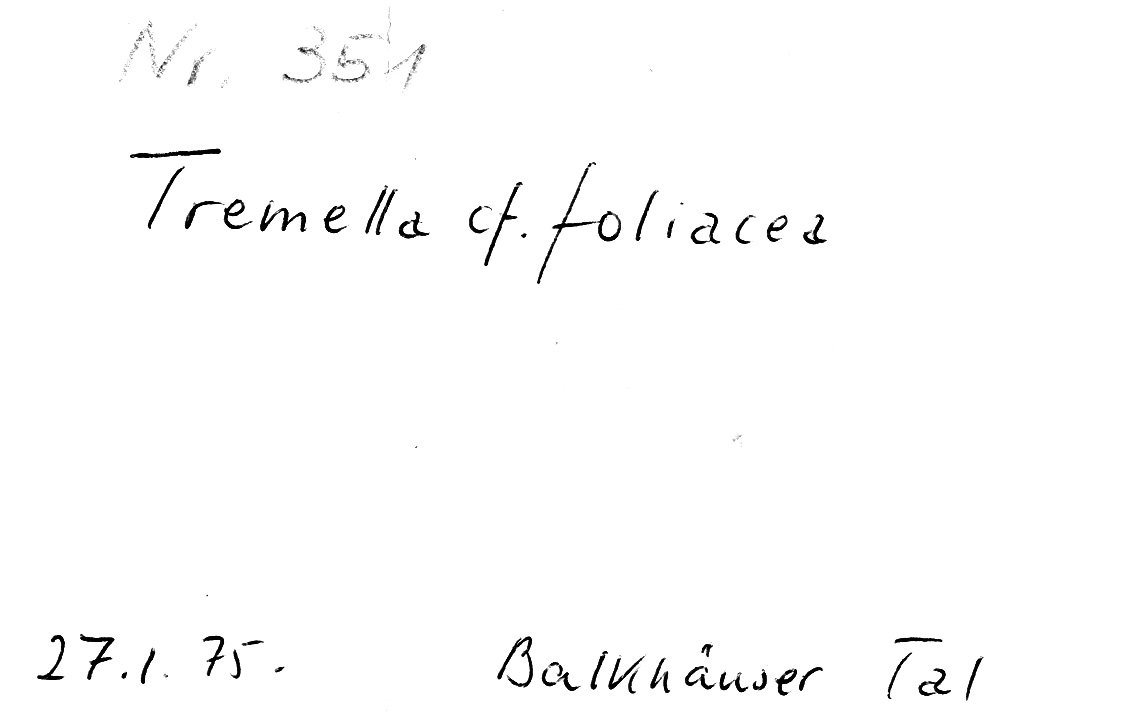 Nr. 351
Tremella cf. foliacea
27.1.75. Balkhäuser Tal